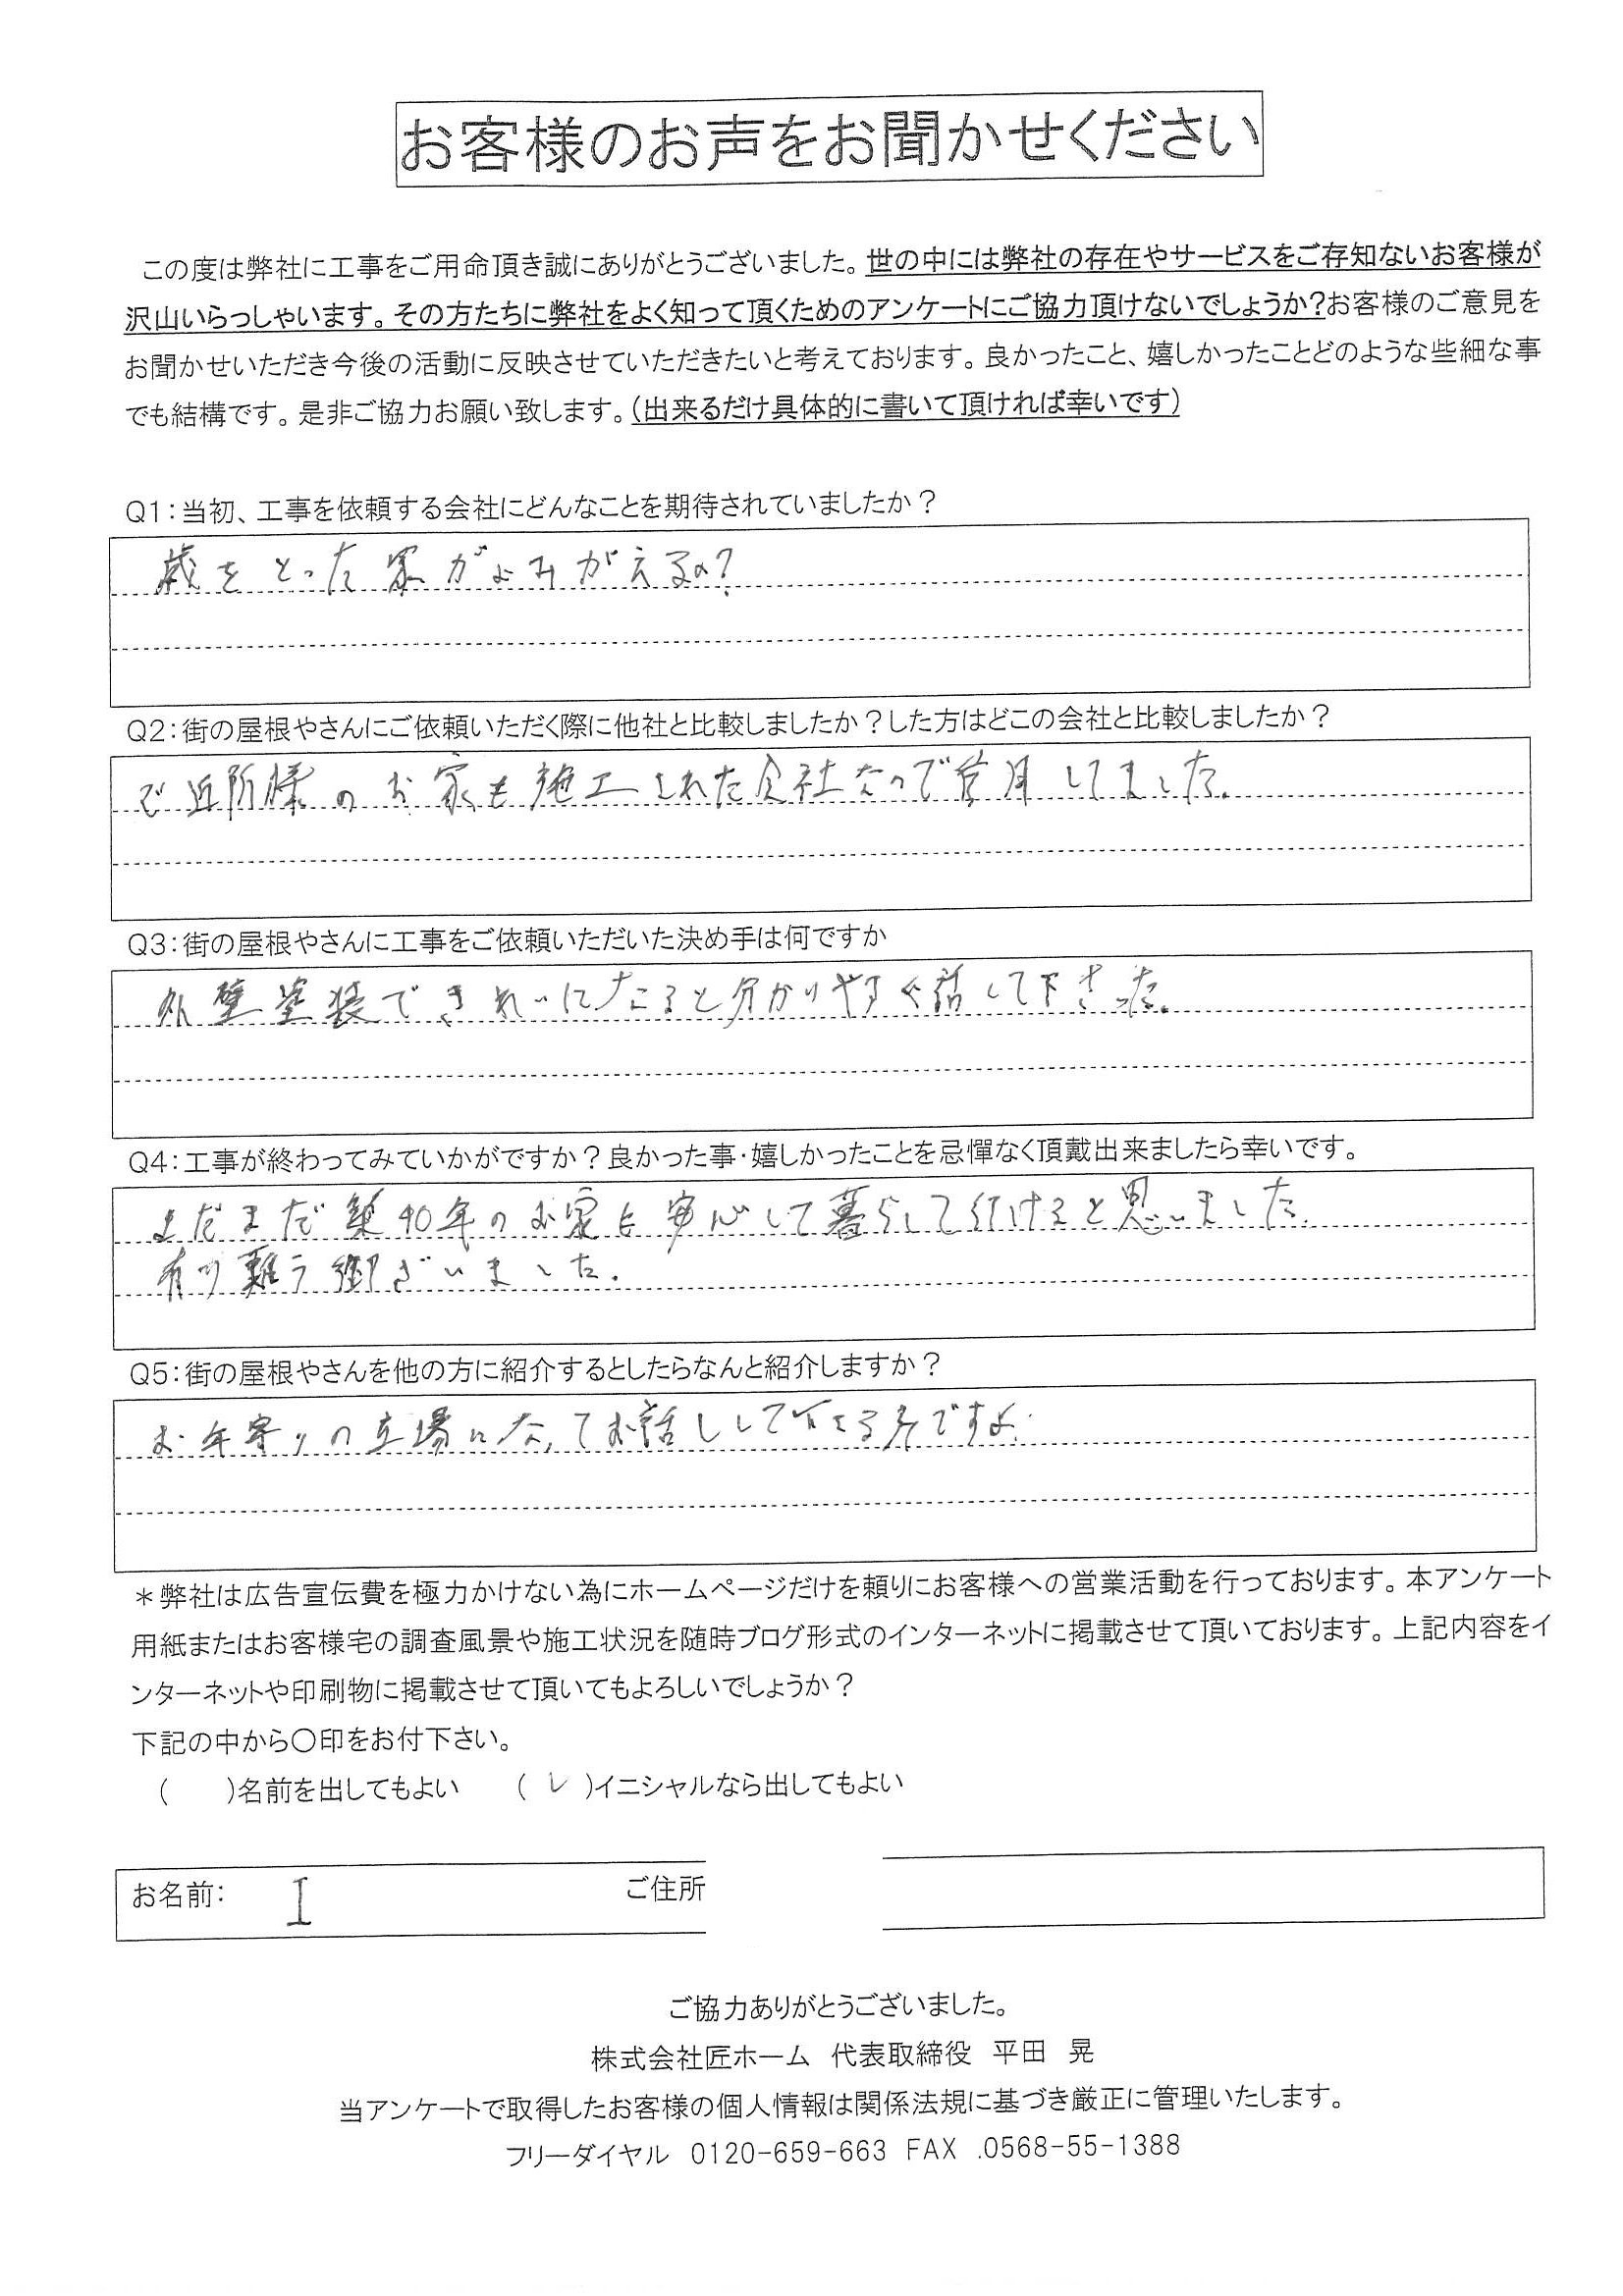 お客様のお声をお聞かせください
この度は弊社に工事をご用命頂き誠にありがとうございました。世の中には弊社の存在やサービスをご存知ないお客様が
沢山いらっしゃいます。その方たちに弊社をよく知って頂くためのアンケートにご協力頂けないでしょうか?お客様のご意見を
お聞かせいただき今後の活動に反映させていただきたいと考えております。良かったこと、嬉しかったことどのような些細な事
でも結構です。是非ご協力お願い致します。(出来るだけ具体的に書いて頂ければ幸いです)
Q1:当初、工事を依頼する会社にどんなことを期待されていましたか?
歳をとった家がよみがえるの?
Q2:街の屋根やさんにご依頼いただく際に他社と比較しましたか?した方はどこの会社と比較しましたか?
ご近所様のお家も施工された会社なので信用してました。
Q3:街の屋根やさんに工事をご依頼いただいた決め手は何ですか
外壁塗装できれいになると分かりやすく話して下さった。
Q4:工事が終わってみていかがですか?良かった事・嬉しかったことを忌憚なく頂戴出来ましたら幸いです。
まだまだ築40年のお家に安心して暮らして行けると思いました。
有り難う御ざいました。
Q5:街の屋根やさんを他の方に紹介するとしたらなんと紹介しますか?
お年寄りの立場になってお話しして下さる方ですよ。
*弊社は広告宣伝費を極力かけない為にホームページだけを頼りにお客様への営業活動を行っております。本アンケート
用紙またはお客様宅の調査風景や施工状況を随時ブログ形式のインターネットに掲載させて頂いております。上記内容をイ
ンターネットや印刷物に掲載させて頂いてもよろしいでしょうか?
下記の中から〇印をお付下さい。
(　　)名前を出してもよい　　( レ )イニシャルなら出してもよい
お名前: I　ご住所
ご協力ありがとうございました。
株式会社匠ホーム　代表取締役　平田　晃
当アンケートで取得したお客様の個人情報は関係法規に基づき厳正に管理いたします。
フリーダイヤル 0120-659-663 FAX .0568-55-1388